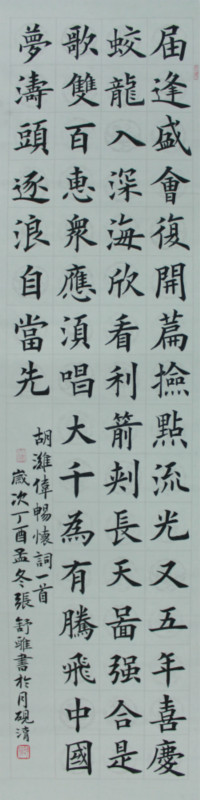 届逢盛會復開篇撿點流光又五年喜慶
蛟龍入深海欣看利箭刾長天啚强合是
歌雙百惠衆應湏唱大千為有騰飛中國
夢濤頭逐浪自當先
胡濰偉暢懷詞一首
歲次丁酉孟冬張舒雅書於月硯清